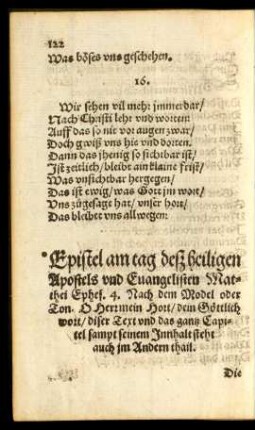 122
Was böses vns geschehen.
16.
Wir sehen vil mehr jmmerdar/
Nach Christi lehr vnd worten:
Auff das so nit vor augen zwar/
Doch gwiß vns hie vnd dorten.
Dann das jhenig so sichtbar ist/
Ist zeitlich/ bleibt ein klaine frist/
Was vnsichtbar hergegen/
Das ist ewig/ was Gott jm wort/
Vns zůgesagt hat/ vnser hort/
Das bleibet vns allwegen:
Epistel am tag deß heiligen
Apostels vnd Euangelisten Mat-
thei Ephes. 4. Nach dem Model oder
Ton. O Herr mein Hort/ dein Göttlich
wort/ diser Text vnd das gantz Capi-
tel sampt seinem Innhalt steht
auch jm Andern thail.
Die